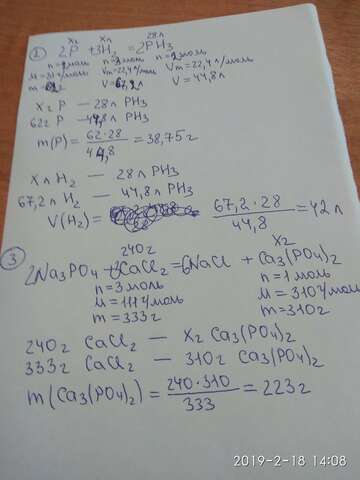 x г x л 28 л
② 2P + 3H₂ = 2PH₃
n = 2 моль n = 3 моль n = 2 моль
M = 31 г/моль Vm = 22,4 л/моль Vm = 22,4 л/моль
m = 62 г V = 67,2 л V = 44,8 л
x г P — 28 л PH₃
62 г P — 44,8 л PH₃
m(P) = 62·28 / 44,8 = 38,75 г
x л H₂ — 28 л PH₃
67,2 л H₂ — 44,8 л PH₃
V(H₂) = 67,2·28 / 44,8 = 42 л
240 г x г
③ 2Na₃PO₄ + 3CaCl₂ = 6NaCl + Ca₃(PO₄)₂
n = 3 моль n = 1 моль
M = 111 г/моль M = 310 г/моль
m = 333 г m = 310 г
240 г CaCl₂ — x г Ca₃(PO₄)₂
333 г CaCl₂ — 310 г Ca₃(PO₄)₂
m(Ca₃(PO₄)₂) = 240·310 / 333 = 223 г
2019-2-18 14:08